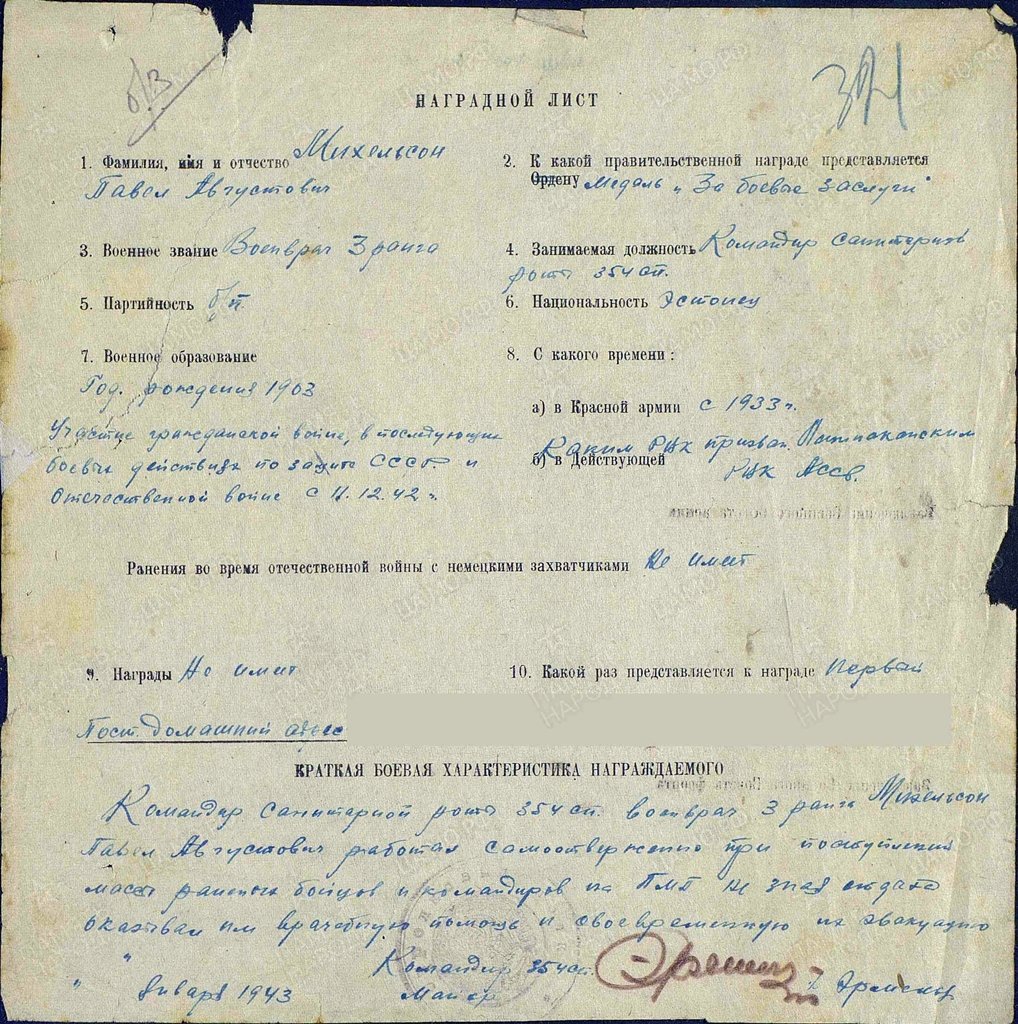 б/з
НАГРАДНОЙ ЛИСТ
1. Фамилия, имя и отчество Михельсон
Павел Августович
2. К какой правительственной награде представляется
Ордену Медаль „За боевые заслуги"
3. Военное звание Военврач 3 ранга
4. Занимаемая должность Командир санитарной
роты 354 сп.
5. Партийность б/п.
6. Национальность Эстонец
7. Военное образование
Год. рождения 1903
8. С какого времени:
а) в Красной армии с 1933 г.
Участие гражданской войне, в последующих
боевых действиях по защите СССР и
Отечественной войне с 11.12.42 г.
Каким РВК призван.
б) в Действующей
РВК АССВ.
Ранения во время отечественной войны с немецкими захватчиками Не имеет
9. Награды Не имеет
10. Какой раз представляется к награде Первый
Пост. домашний адрес
КРАТКАЯ БОЕВАЯ ХАРАКТЕРИСТИКА НАГРАЖДАЕМОГО
Командир санитарной роты 354 сп. военврач 3 ранга Михельсон
Павел Августович работал самоотверженно при поступлении
масс раненых бойцов и командиров на ПМП не зная отдыха
оказывал им врачебную помощь и своевременную их эвакуацию
Командир 354 сп.
Майор
" " Января 1943